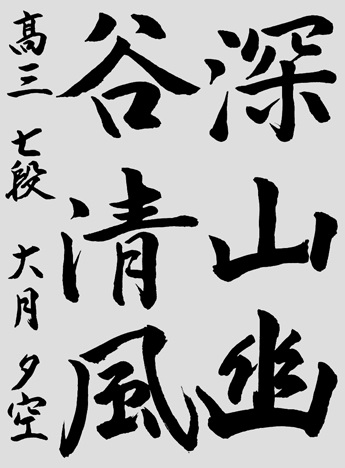 深山幽
谷清風
高三 七段 大月 夕空